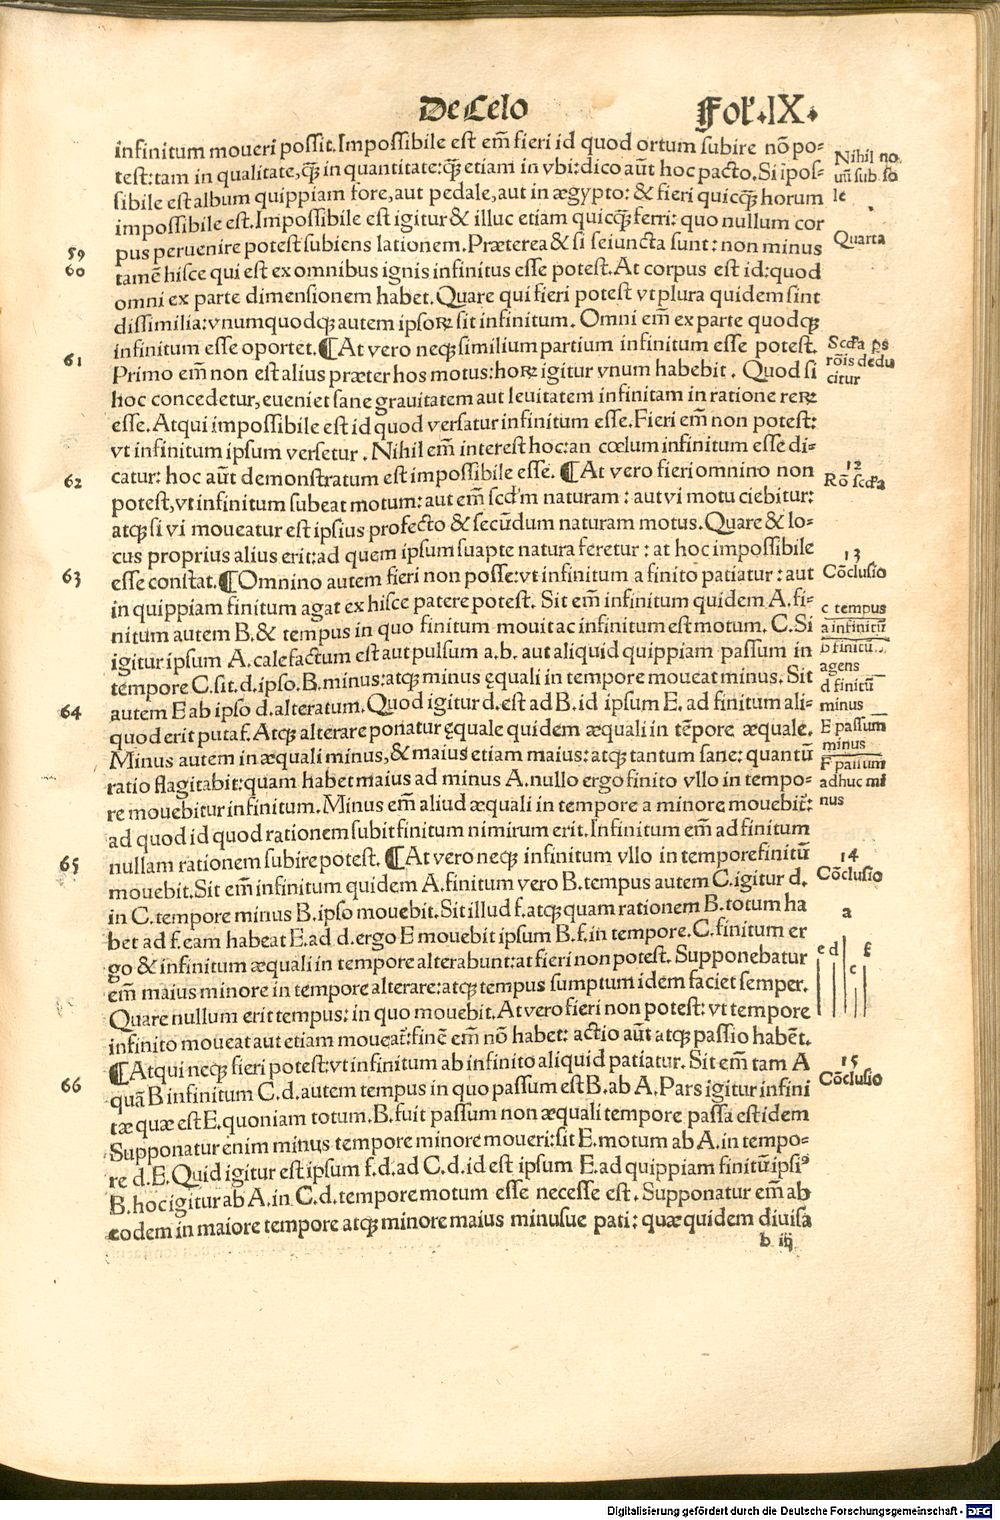 De Celo
Fol. IX.
infinitum moueri possit. Impossibile est em̃ fieri id quod ortum subire nõ po=
test: tam in qualitate, q̃ꝫ in quantitate: q̃ꝫ etiam in vbi: dico aũt hoc pacto. Si ipos=
sibile est album quippiam fore, aut pedale, aut in ægypto: & fieri quicq̃ꝫ horum
impossibile est. Impossibile est igitur & illuc etiam quicq̃ꝫ ferri: quo nullum cor
pus peruenire potest subiens lationem. Præterea & si seiuncta sunt: non minus
tamẽ hisce qui est ex omnibus ignis infinitus esse potest. At corpus est id: quod
omni ex parte dimensionem habet. Quare qui fieri potest vt plura quidem sint
dissimilia: vnumquodqꝫ autem ipsoꝝ sit infinitum. Omni em̃ ex parte quodqꝫ
infinitum esse oportet. ¶At vero neqꝫ similium partium infinitum esse potest.
Primo em̃ non est alius præter hos motus: hoꝝ igitur vnum habebit. Quod si
hoc concedetur, eueniet sane grauitatem aut leuitatem infinitam in ratione reꝝ
esse. Atqui impossibile est id quod versatur infinitum esse. Fieri em̃ non potest:
vt infinitum ipsum versetur. Nihil em̃ interest hoc: an cœlum infinitum esse di=
catur: hoc aũt demonstratum est impossibile esse. ¶At vero fieri omnino non
potest, vt infinitum subeat motum: aut em̃ scd'm naturam: aut vi motu ciebitur:
atqꝫ si vi moueatur est ipsius profecto & secũdum naturam motus. Quare & lo=
cus proprius alius erit: ad quem ipsum suapte natura feretur: at hoc impossibile
esse constat. ¶Omnino autem fieri non posse: vt infinitum a finito patiatur: aut
in quippiam finitum agat ex hisce patere potest. Sit em̃ infinitum quidem A. fi=
nitum autem B. & tempus in quo finitum mouit ac infinitum est motum. C. Si
igitur ipsum A. calefactum est aut pulsum a. b. aut aliquid quippiam passum in
tempore C. sit. d. ipso. B. minus: atqꝫ minus ęquali in tempore moueat minus. Sit
autem E ab ipso d. alteratum. Quod igitur d. est ad B. id ipsum E. ad finitum ali=
quod erit putaf. Atqꝫ alterare ponatur ęquale quidem æquali in tẽpore æquale.
Minus autem in æquali minus, & maius etiam maius: atqꝫ tantum sane: quantũ
ratio flagitabit: quam habet maius ad minus A. nullo ergo finito vllo in tempo=
re mouebitur infinitum. Minus em̃ aliud æquali in tempore a minore mouebit̃:
ad quod id quod rationem subit finitum nimirum erit. Infinitum em̃ ad finitum
nullam rationem subire potest. ¶At vero neqꝫ infinitum vllo in tempore finitũ
mouebit. Sit em̃ infinitum quidem A. finitum vero B. tempus autem C. igitur d.
in C. tempore minus B. ipso mouebit. Sit illud f. atqꝫ quam rationem B. totum ha
bet ad f. eam habeat E. ad d. ergo E mouebit ipsum B. f. in tempore. C. finitum er
go & infinitum æquali in tempore alterabunt: at fieri non potest. Supponebatur
em̃ maius minore in tempore alterare: atqꝫ tempus sumptum idem faciet semper.
Quare nullum erit tempus: in quo mouebit. At vero fieri non potest: vt tempore
infinito moueat aut etiam moueat̃: finẽ em̃ nõ habet: actio aũt atqꝫ passio habẽt.
¶Atqui neqꝫ fieri potest: vt infinitum ab infinito aliquid patiatur. Sit em̃ tam A
quã B infinitum C. d. autem tempus in quo passum est B. ab A. Pars igitur infini
tæ quæ est E. quoniam totum. B. fuit passum non æquali tempore passa est idem
Supponatur enim minus tempore minore moueri: sit E. motum ab A. in tempo=
re d. E. Quid igitur est ipsum f. d. ad C. d. id est ipsum E. ad quippiam finitũ ipsiꝰ
B. hoc igitur ab A. in C. d. tempore motum esse necesse est. Supponatur em̃ ab
eodem in maiore tempore atqꝫ minore maius minusue pati: quæ quidem diuisa
b iij
59
60
61
62
63
64
65
66
Nihil no
uũ sub so
le
Quarta
Scďa ps
rõis dedu
citur
12
Rõ scďa
13
Cõclusio
c tempus
a infinitũ
b finitũ
agens
d finitũ
minus
E passum
minus
F passum
adhuc mi
nus
14
Cõclusio
a
e d c f
15
Cõclusio
Digitalisierung gefördert durch die Deutsche Forschungsgemeinschaft - DFG